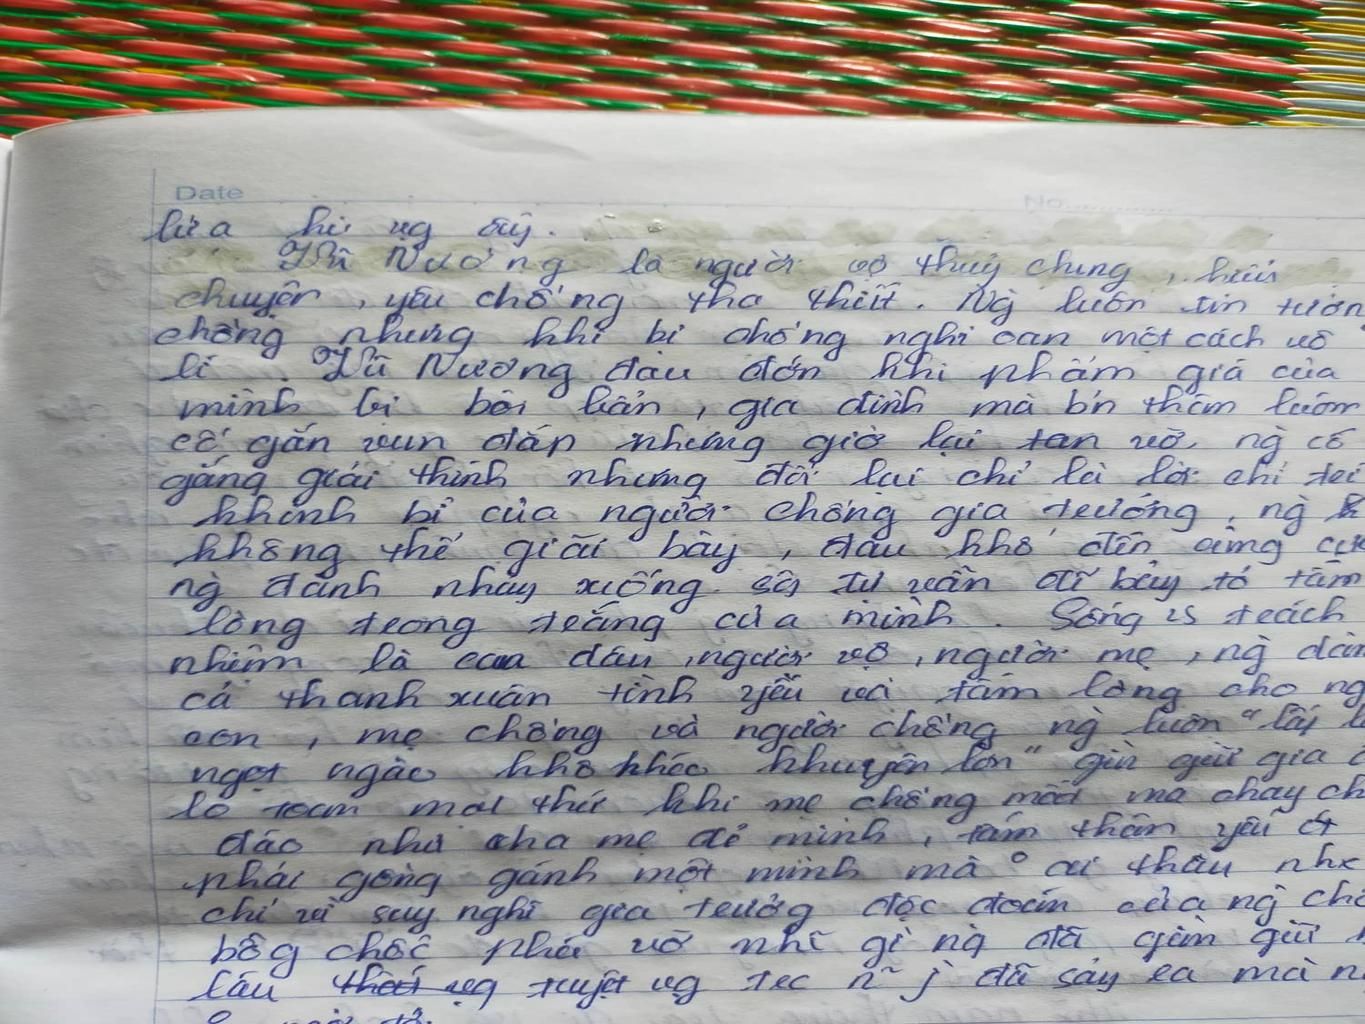 Date No.
lứa hư vg ấy.
Vũ Nương là người vợ thuỷ chung, hiếu
chuyện, yêu chồng tha thiết. Ng luôn tin tưởn
chồng nhưng khi bị chồng nghi oan một cách vô
lí. Vũ Nương đau đớn khi phẩm giá của
mình bị bôi bẩn, gia đình mà bản thân luôn
cố gắn vun đắp nhưng giờ lại tan vỡ, ng cố
gắng giải thính nhưng đổi lại chỉ là lời chỉ
khinh bỉ của người chồng gia trưởng, ng
không thể giãi bày, đau khổ đến cùng cực
ng đành nhảy xuống sg tự vẫn để bày tỏ tấm
lòng trong trắng của mình. Sống vs trách
nhiệm là con dâu, người vợ, người mẹ, ng dàn
cả thanh xuân tình yêu và tấm lòng cho ng
con, mẹ chồng và người chồng ng luôn "lấy l
ngọt ngào khôn khéo khuyên lơn" gìn giữ gia đ
lo toan mọi thứ khi mẹ chồng mất ma chay ch
đáo như cha mẹ đẻ mình, tấm thân yếu ớt
phải gồng gánh một mình mà o ai thấu nhx
chỉ vì suy nghĩ gia trưởg độc đoán của ng chồ
bỗg chốc phá vỡ nhx gì ng đã gìm giữ
lâu vg tuyệt vg trc n~ j đã sảy ra mà n